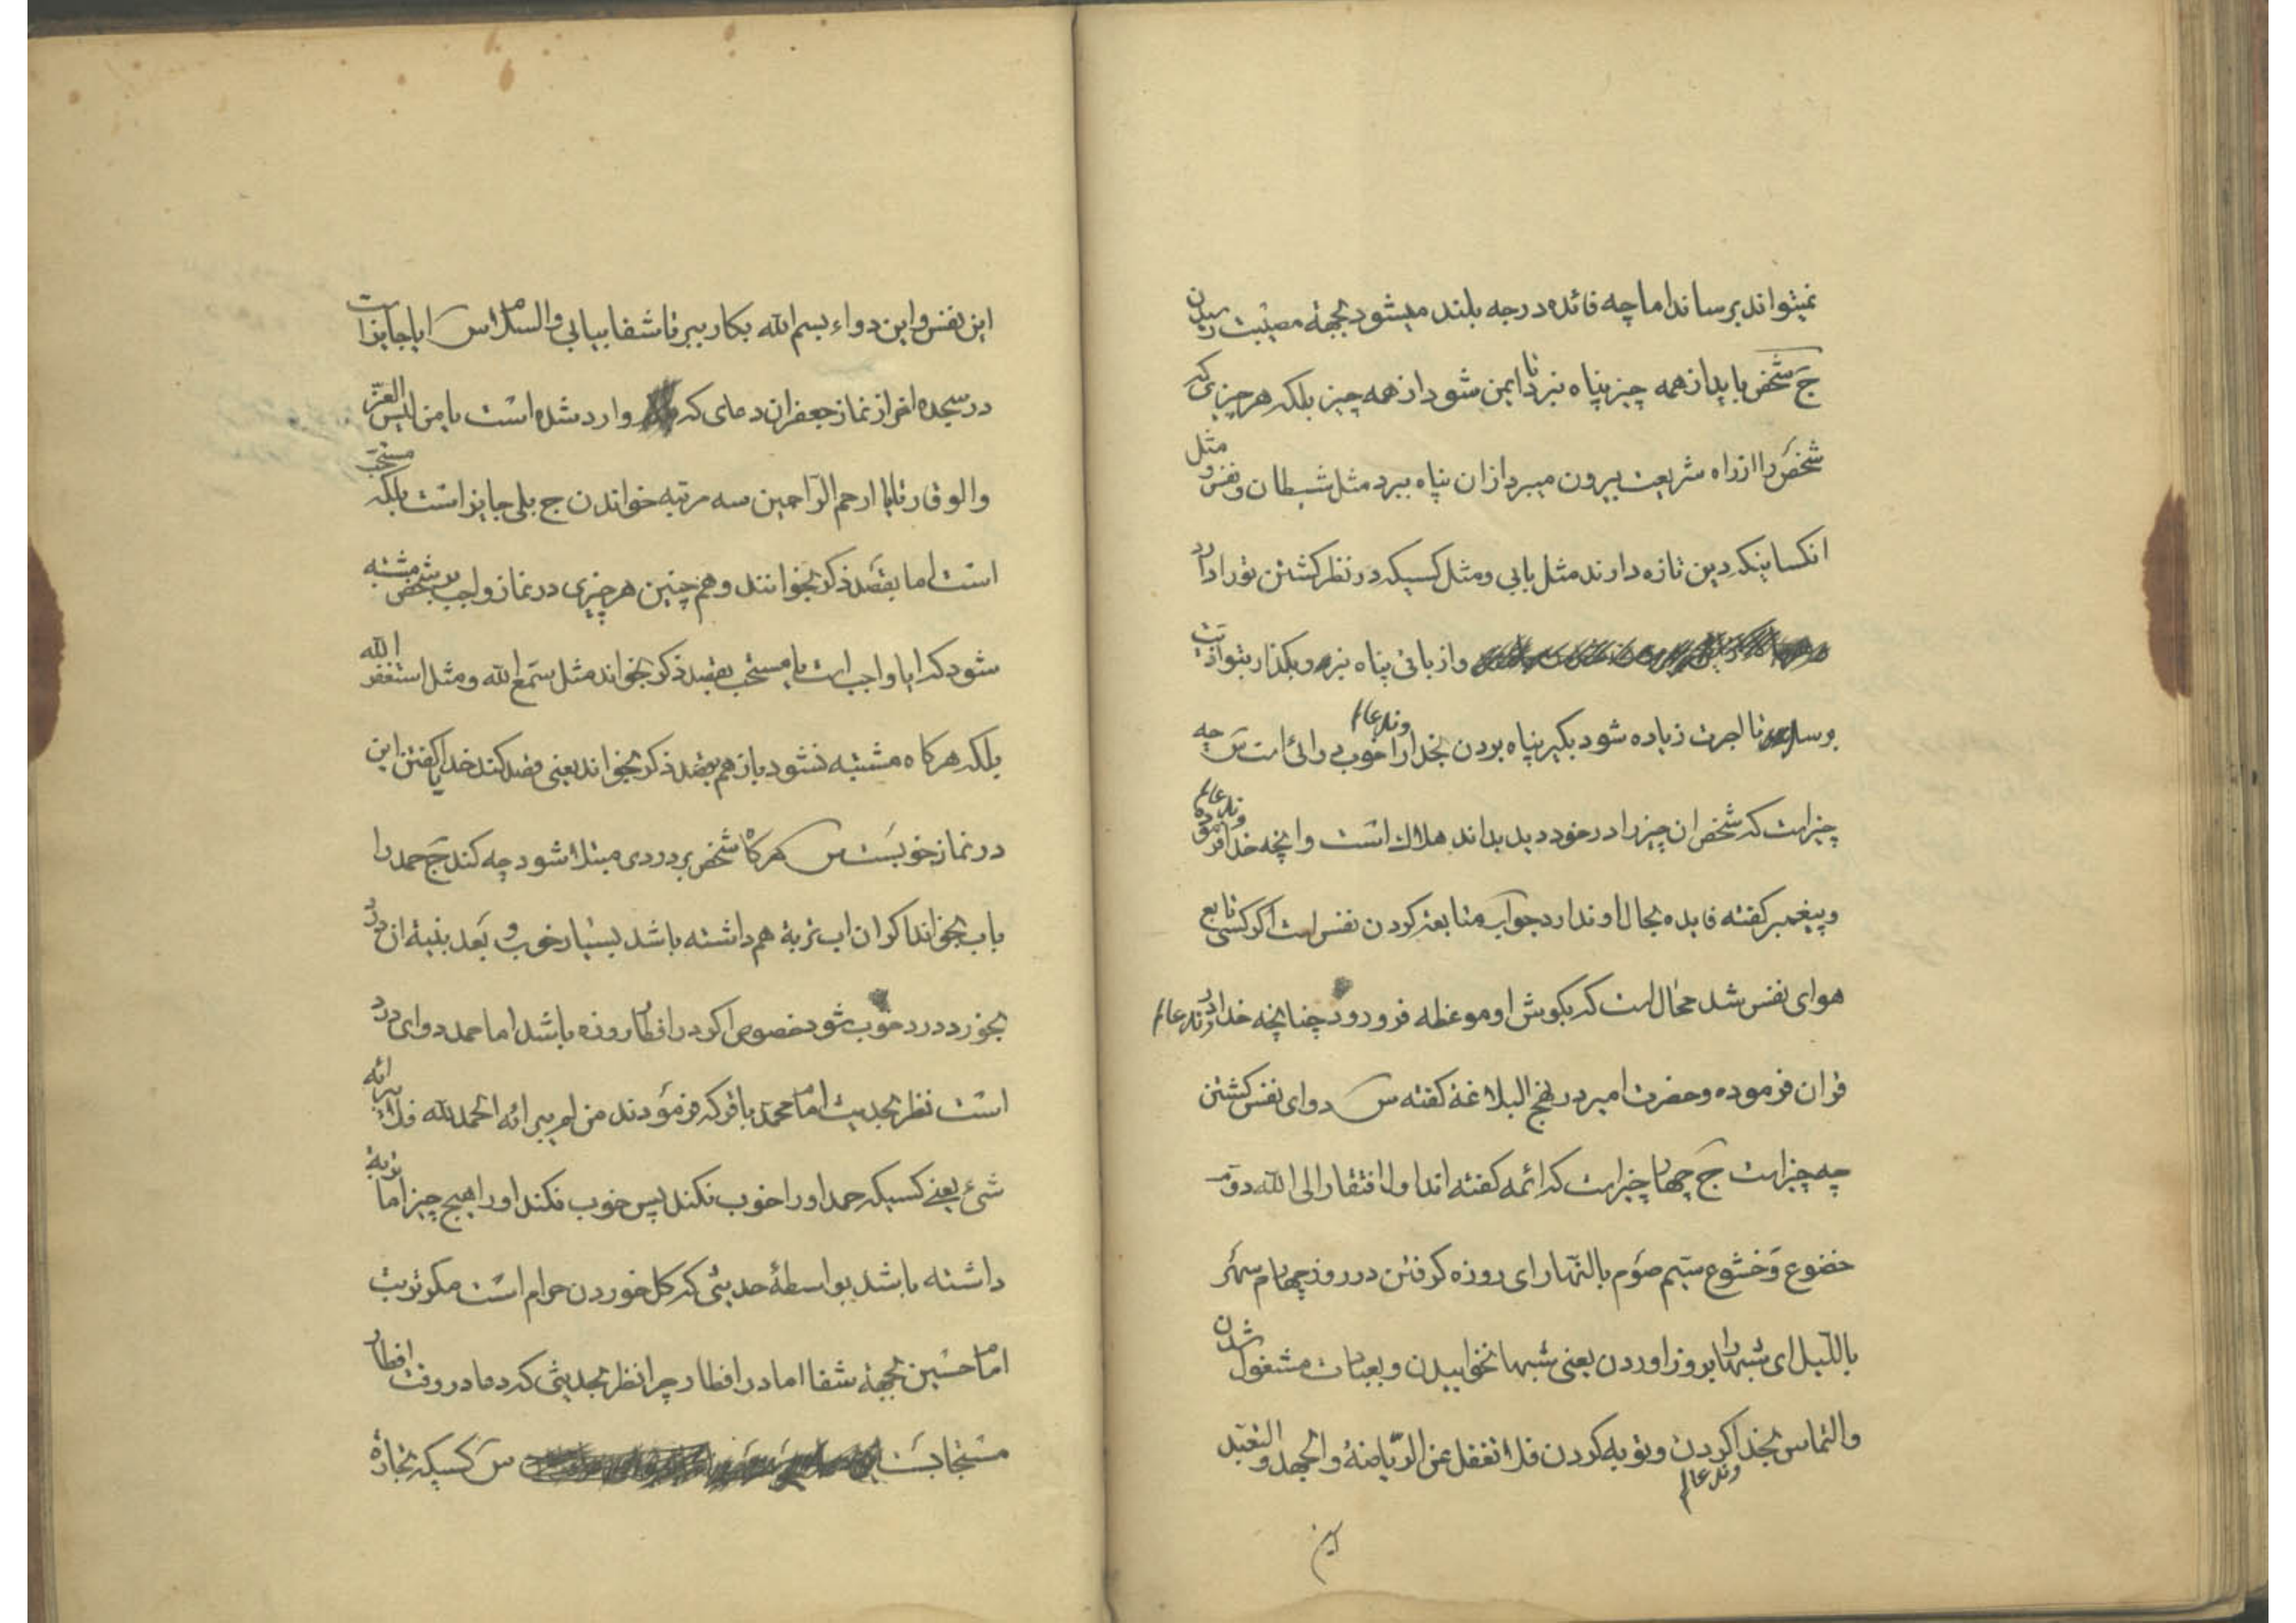 نمیتواند برساند اما چه فائده درجه بلند میشود بجهة مصیبت رسیدن
ج شخص باید از همه چیز پناه ببرد تا ایمن شود از همه چیز بلکه هر چیزی که
شخص را از راه شریعت بیرون میبرد از ان پناه ببرد مثل شیطان و نفس و مثل
انکساینکه دین تازه دارند مثل بابی و مثل کسیکه در نظر کشتن تو را دارد
و از بابی پناه ببر و بگذار بتو اذیت
برساند تا اجرت زیاده شود بگیر پناه بردن بخدا را خوب دوائی است س چه
وند عالم
چیز است که شخص ان چیز را در خود دید بداند هلاك است و انچه خداوند عالم فرموده
و پیغمبر کفته فایده بحال او ندارد جواب متابعة کردن نفس است اکر کسی تابع
هوای نفس شد محال است که بکوش او موعظه فرو رود چنانچه خداوند عالم در
قران فرموده و حضرت امیر در نهج البلاغة کفته س دوای نفس کشتن
چه چیز است ج چهار چیز است که ائمه کفته اند اول افتقار الی الله دوم
خضوع و خشوع سیم صوم بالنهار ای روزه کرفتن در روز چهارم سهر
باللیل ای شبها را بروز اوردن یعنی شبها نخوابیدن و بعبادت مشغول شدن
والتماس بخدا کردن و توبه کردن فلا تغفل عن الریاضة والجهد والتعبد
وند عالم
این
این نفس و این دواء بسم الله بکار ببر تا شفا بیابی والسلام س ایا جایز است
در سجده اخر از نماز جعفر ان دعای که وارد شده است یا من لبس العز
والوقار تا یا ارحم الراحمین سه مرتبه خواندن ج بلی جایز است بلکه مستحب
است اما بقصد ذکر بخوانند و هم چنین هر چیزی در نماز واجب بر شخص مشتبه
شود که ایا واجب است یا مستحب بقصد ذکر بخواند مثل سمع الله و مثل استغفر الله
بلکه هرکاه مشتبه نشود باز هم بقصد ذکر بخواند یعنی قصد کند خدا کفتن این
در نماز خوبست س هرکاه شخص بر دردی مبتلا شود چه کند ج حمد را
باب بخواند اکر ان اب تربة هم داشته باشد بسیار خوب و بعد بنیة ان درد
بخورد درد خوب شود خصوص اکر در افطار روزه باشد اما حمد دوای درد
است نظر بحدیث امام محمد باقر که فرمودند من لم یبرائه الحمد لله فلا یبرائه
شئ یعنی کسیکه حمد او را خوب نکند پس خوب نکند او را هیچ چیز اما تربة
داشته باشد بواسطهٔ حدیثی که کل خوردن حرام است مکر تربت
امام حسین بجهة شفا اما در افطار چرا نظر بحدیثی که دعا در وقت افطار
مستجابست س کسیکه بخازهٔ